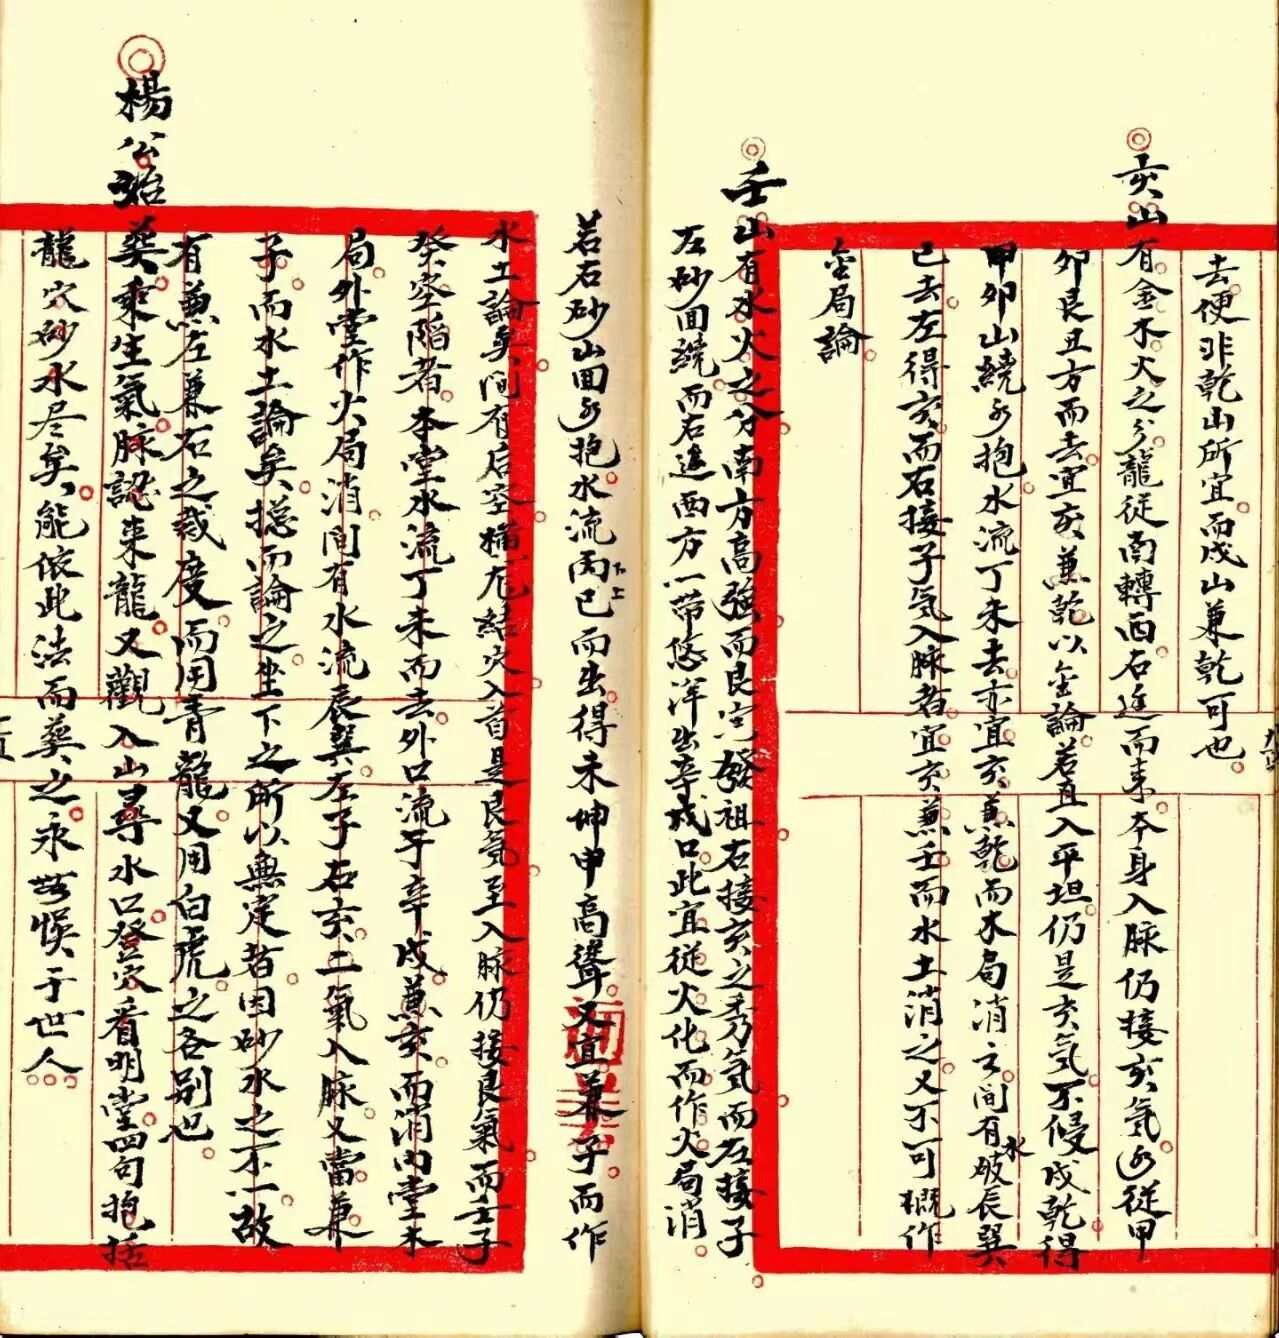 去便非乾山所宜而戌山兼乾可也
亥山有金水火之分龍從南轉西右遶而來夲身入脉仍接亥氣水從甲
卯艮丑方而去宜亥兼乾以金論若直入平坦仍是亥氣不侵戌乾得
甲卯山繞水抱水流丁未去亦宜亥兼乾而木局消之间有水破辰巽
巳去左得亥而右接子气入脉者宜亥兼壬而水土消之又不可概作
金局論
壬山有水火之分南方高強而艮宫發祖右接亥之秀气而左接子
左砂回繞而右邊西方一帶悠洋出辛戌口此宜從火化而作火局消
若右砂山回水抱水流丙巳而出得未坤申高聳又宜兼子而作
水土論矣间有后空精危結穴入首是艮氣至入脉仍接艮氣而壬子
癸空陷者本堂水流丁未而去外口流于辛戌兼亥而消内堂木
局外堂作火局消间有水流辰巽左子右亥二氣入脉又當兼
子而水土論矣揔而論之坐下之所以無定者因砂水之不一故
有兼左兼右之裁度而用青龍又用白虎之各别也
楊公治葬乘生氣脉認来龍又觀入山尋水口登穴看明堂四句抱括
龍穴砂水尽矣能依此法而葬之永無悞于世人